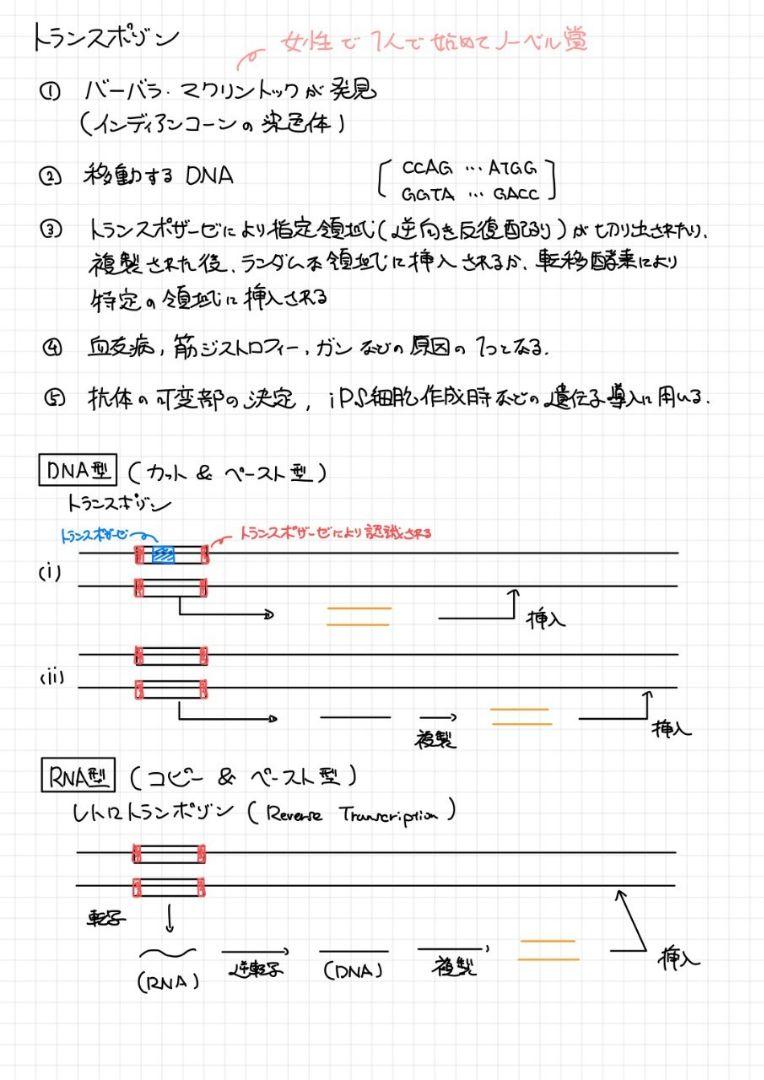 トランスポゾン
女性で1人で始めてノーベル賞
① バーバラ・マクリントックが発見
(インディアンコーンの染色体)
② 移動するDNA
CCAG … ATGG
GGTA … GACC
③ トランスポザーゼにより指定領域(逆向き反復配列)が切り出されたり、
複製された後、ランダムな領域に挿入されるか、転移酵素により
特定の領域に挿入される
④ 血友病,筋ジストロフィー,ガンなどの原因の1つとなる.
⑤ 抗体の可変部の決定, iPS細胞作成時などの遺伝子導入に用いる.
DNA型 (カット & ペースト型)
トランスポゾン
トランスポザーゼ トランスポザーゼにより認識される
(i)
挿入
(ii)
複製 挿入
RNA型 (コピー & ペースト型)
レトロトランポゾン (Reverse Transcription)
転写
(RNA) 逆転写 (DNA) 複製 挿入